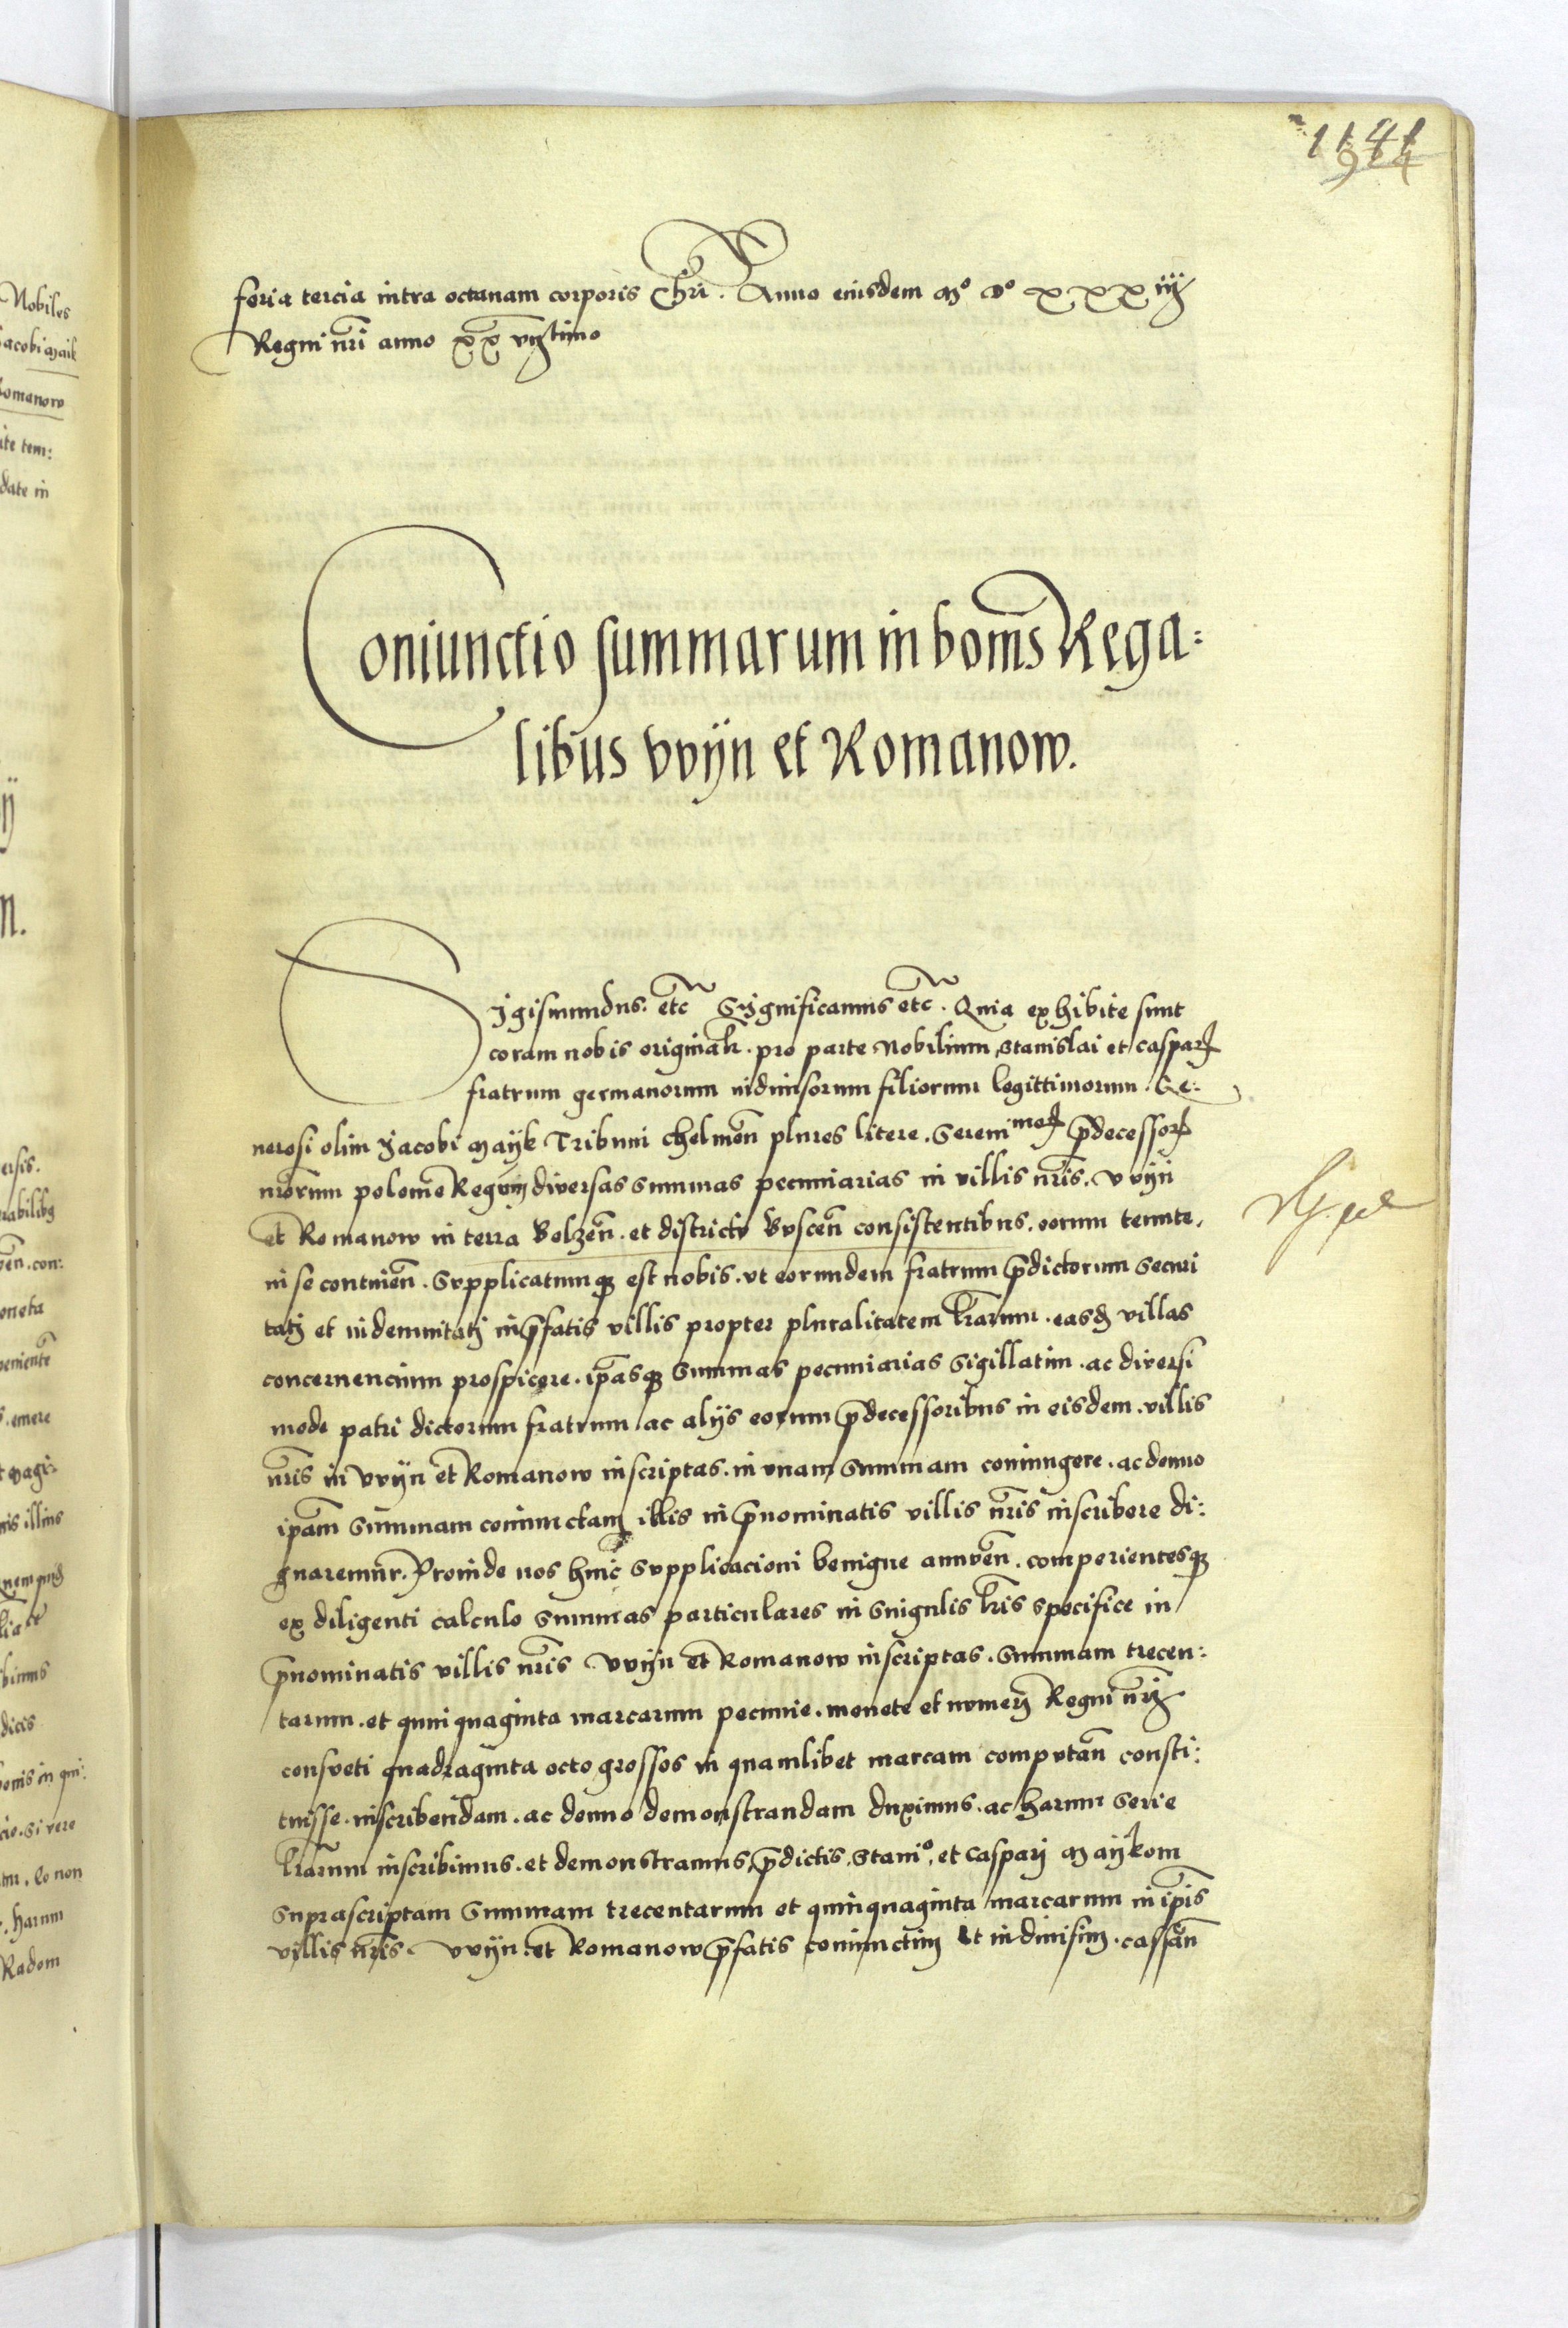 feria tercia intra octauam corporis Chri. Anno eiusdem Mº Dº XXXiij
Regni nri anno XX vijtimo
Coniunctio summarum in bonis Rega:
libus vvijn et Romanow.
Sigismundus. etc Significamus etc. Quia exhibite sunt
coram nobis originalr. pro parte Nobilium, Stanislai et casparj
fratrum germanorum indiuisorum filiorum legittimorum Ge:
nerosi olim Jacobi Mayk Tribuni chelmen plures litere. Serenimorum predecessorum
nrorum polonie Regum diversas summas pecuniarias in villis nris. vvijn
et Romanow in terra Belzen. et districtu buscen consistentibus. eorum tenute.
in se continen. Supplicatumque est nobis. vt eorundem fratrum predictorum securi
tatj et indemnitatj in prefatis villis propter pluralitatem lrarum. easd villas
concernencium prospicere. ipasque summas pecuniarias sigillatim. ac diversi
mode patri dictorum fratrum ac alijs eorum predecessoribus in eisdem. villis
nris in vvijn et Romanow inscriptas. in vnam summam coniungere. ac denuo
ipam summam coniunctam illis in prenominatis villis nris inscribere di:
gnaremur. Proinde nos huic supplicacioni benigne annuen. comperientesque
ex diligenti calculo summas particulares in singulis lris specifice in
prenominatis villis nris vvijn et Romanow inscriptas. summam trecen:
tarum. et quinquaginta marcarum pecunie. monete et numerj Regni nrj
consueti quadraginta octo grossos in quamlibet marcam computan consti:
tuisse. inscribendam. ac denuo demonstrandam duximus. ac harum serie
lrarum inscribimus. et demonstramus, predictis. Staniº. et caspari Maijkom
suprascriptam summam trecentarum et quinquaginta marcarum in ipis
villis nris. vvijn. et Romanow prefatis coniunctim et indiuisim. cassan